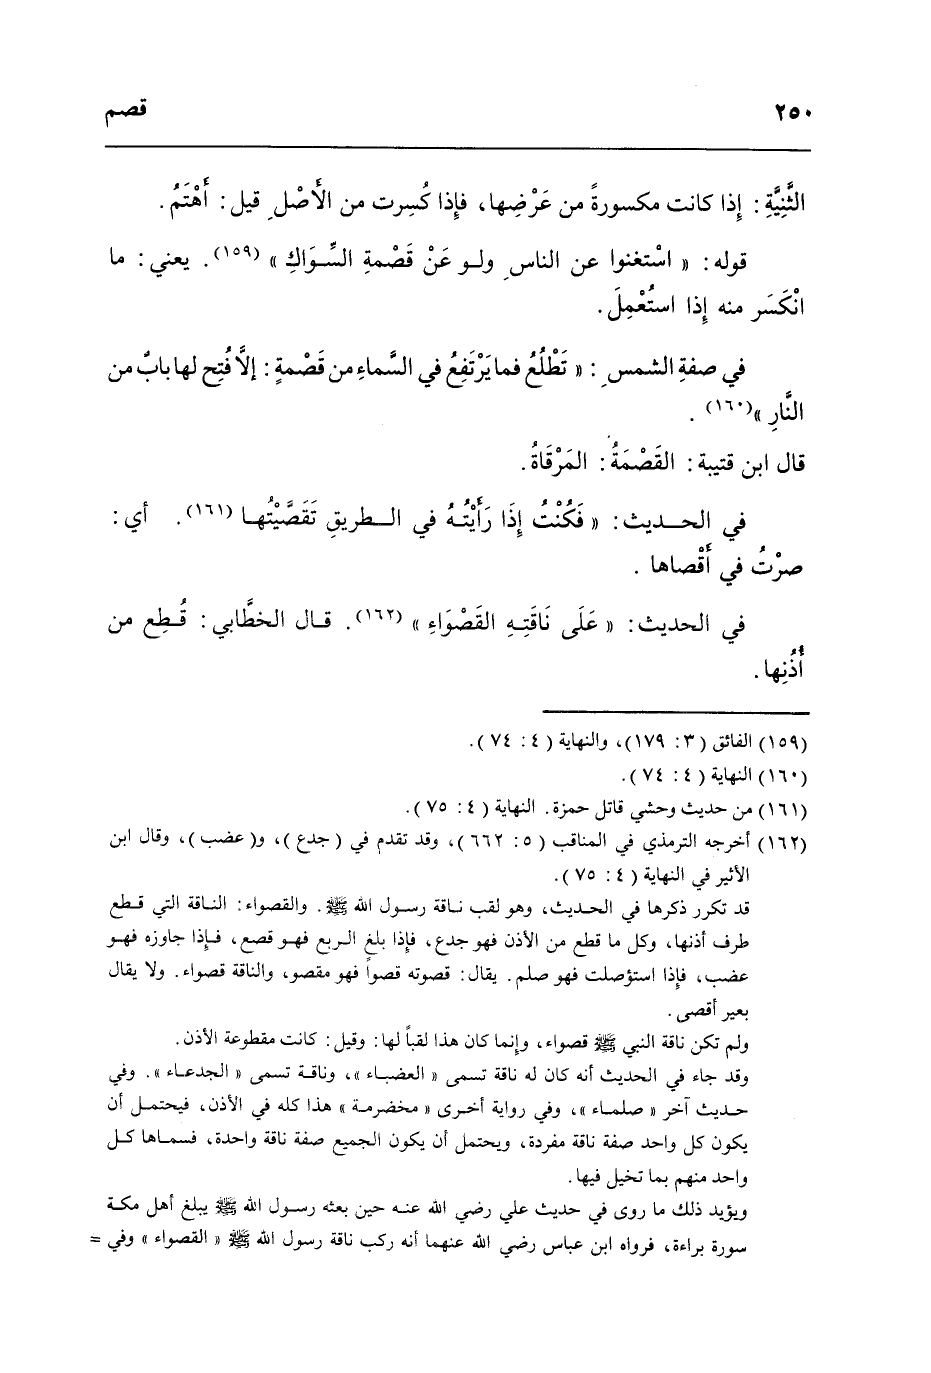 ٢٥٠ قصم
الثَّنِيَّةِ: إِذا كانت مكسورةً من عَرْضِها، فإِذا كُسِرت من الأَصْلِ قيل: أَهْتَمُ.
قوله: « اسْتغنوا عن الناسِ ولو عَنْ قَصْمةِ السِّوَاكِ » (١٥٩). يعني: ما
انْكَسَر منه إِذا استُعْمِلَ.
في صفةِ الشمسِ: « تَطْلُعُ فما يَرْتَفِعُ في السَّماءِ من قَصْمةٍ: إلَّا فُتِح لها بابٌ من
النَّارِ »(١٦٠).
قال ابن قتيبة: القَصْمَةُ: المَرْقَاةُ.
في الحديث: « فَكُنْتُ إِذَا رَأَيْتُهُ في الطريقِ تَقَصَّيْتُها (١٦١). أي:
صرْتُ في أَقْصاها .
في الحديث: « عَلَى نَاقَتِهِ القَصْوَاءِ » (١٦٢). قال الخطَّابي: قُطِع من
أُذُنِها.
(١٥٩) الفائق (٣: ١٧٩)، والنهاية (٤: ٧٤).
(١٦٠) النهاية (٤: ٧٤).
(١٦١) من حديث وحشي قاتل حمزة. النهاية (٤: ٧٥).
(١٦٢) أخرجه الترمذي في المناقب (٥: ٦٦٢)، وقد تقدم في (جدع)، و(عضب)، وقال ابن
الأثير في النهاية (٤: ٧٥).
قد تكرر ذكرها في الحديث، وهو لقب ناقة رسول الله ﷺ. والقصواء: الناقة التي قطع
طرف أذنها، وكل ما قطع من الأذن فهو جدع، فإذا بلغ الربع فهو قصع، فإذا جاوزه فهو
عضب، فإذا استؤصلت فهو صلم. يقال: قصوته قصواً فهو مقصو، والناقة قصواء. ولا يقال
بعير أقصى.
ولم تكن ناقة النبي ﷺ قصواء، وإنما كان هذا لقباً لها: وقيل: كانت مقطوعة الأذن.
وقد جاء في الحديث أنه كان له ناقة تسمى « العضباء »، وناقة تسمى « الجدعاء ». وفي
حديث آخر « صلماء »، وفي رواية أخرى « مخضرمة » هذا كله في الأذن، فيحتمل أن
يكون كل واحد صفة ناقة مفردة، ويحتمل أن يكون الجميع صفة ناقة واحدة، فسماها كل
واحد منهم بما تخيل فيها.
ويؤيد ذلك ما روى في حديث علي رضي الله عنه حين بعثه رسول الله ﷺ يبلغ أهل مكة
سورة براءة، فرواه ابن عباس رضي الله عنهما أنه ركب ناقة رسول الله ﷺ « القصواء » وفي =